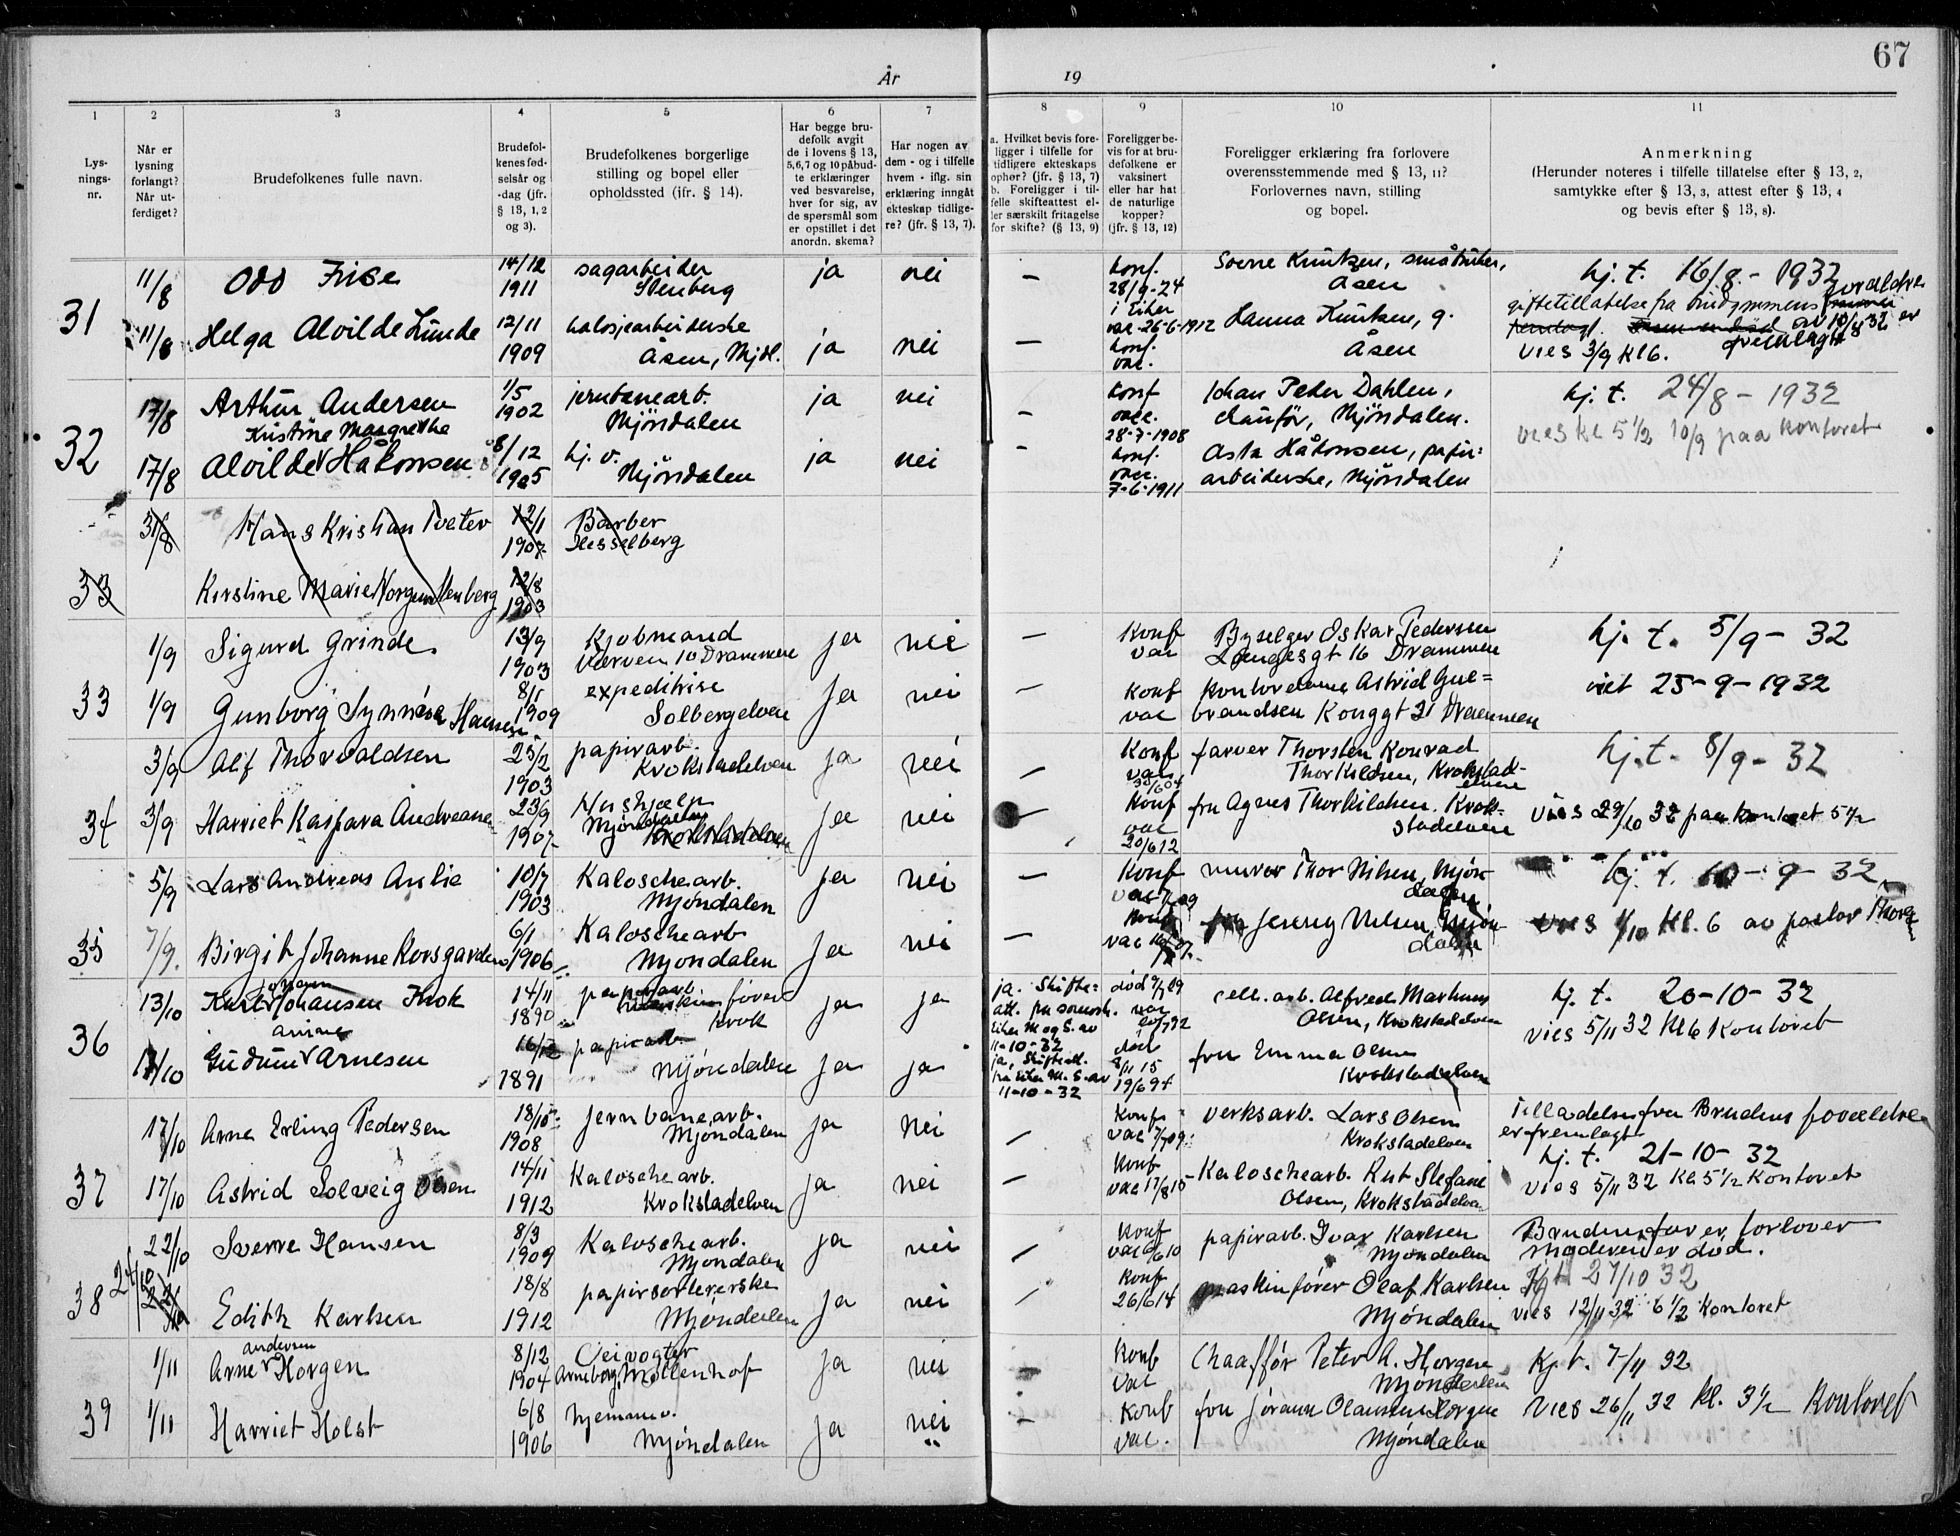 67
År 19
1 2 3 4 5 6 7 8 9 10 11
Lys-
nings-
nr.
Når er
lysning
forlangt?
Når ut-
ferdiget?
Brudefolkenes fulle navn.
Brudefol-
kenes fød-
selsår og
-dag (jfr.
§ 13, 1, 2
og 3).
Brudefolkenes borgerlige
stilling og bopel eller
opholdssted (ifr. § 14).
Har begge bru-
defolk avgit
de i lovens § 13,
5,6,7 og 10 påbud-
te erklæringer
ved besvarelse,
hver for sig, av
de spørsmål som
er opstillet i det
anordn. skema?
Har nogen av
dem - og i tilfelle
hvem - iflg. sin
erklæring inngåt
ekteskap tidlige-
re? (jfr. § 13, 7).
a. Hvilket bevis fore-
ligger i tilfelle for
tidligere ekteskaps
ophør? (jfr. § 13, 7)
b. Foreligger i til-
felle skifteattest el-
ler særskilt fritagelse
for skifte? (§ 13, 9)
Foreligger be-
vis for at bru-
defolkene er
vaksinert
eller har hat
de naturlige
kopper?
(jfr. § 13, 12)
Foreligger erklæring fra forlovere
overensstemmende med § 13, 11?
Forlovernes navn, stilling
og bopel.
Anmerkning
(Herunder noteres i tilfelle tillatelse efter § 13, 2,
samtykke efter § 13, 3, attest efter § 13, 4
og bevis efter § 13, 8).
31
11/8 Odd Frise 14/12 1911 sagarbeider Stenberg ja nei — konf. 28/9-24 i Eiker vac-26-6-1912 Sverre Knutzen, småbruker, Åsen
hj. t. 16/8 - 1932
giftetillatelse fra brudgommens foreldre
av 10/8 32 er
fremlagt
11/8 Helga Alvilde Lunde 12/11 1909 kalosjearbeiderske Åsen, Mjdl. ja nei — konf. vac. Hanna Knutzen, g. Åsen
vies 3/9 kl 6.
32
17/8 Arthur Andersen 1/5 1902 jernbanearb. Mjøndalen ja nei — konf vacc. 28-7-1908 Johan Peder Dahlen, chaufør, Mjøndalen.
hj. t. 24/8 - 1932
Kristine Margrethe
17/8 Alvilde Håkonsen 8/12 1905 hj. v. Mjøndalen ja nei - konf. vacc. 7-6-1911 Asta Håkonsen, papir=
arbeiderske, Mjøndalen
vies kl 5 1/2 10/9 paa kontoret
33
31/8 Hans Kristian Tveter 12/1 1907 Barber Hesselberg
Kirstine Marie Stenberg 12/8 1903
33
1/9 Sigurd Grinde 13/9 1903 Kjøbmand Værven 10 Drammen ja nei — Konf vac Byselger Oskar Pederssen
Langesgt 16 Drammen
hj. t. 5/9 - 32
1/9 Gunborg Synnöve Hansen 8/1 1909 expeditrise Solbergelven ja nei — konf vac kontordame Astrid Gul=
brandsen Konggt 31 Drammen
viet 25-9-1932
34
3/9 Alf Thorvaldsen 25/2 1903 papirarb. Krokstadelven ja nei — Konf vac farver Thorsten Konrad
Thorkildsen, Krokstad-
elven
hj. t. 8/9 - 32
3/9 Harriet Kaspara Andreassen 23/9 1907 Hushjælp Mjøndalen Krokstadelven ja nei — Konf vac 20/6 12 fru Agnes Thorkildsen. Krok-
stadelven
vies 29/10 32 paa kontoret 5 1/2
35
5/9 Lars Andreas Aulie 10/7 1903 Kaloschearb. Mjøndalen ja nei — Konf murer Thor Nilsen, Mjøn-
dalen
hj. t. 10-9-32
7/9. Birgit Johanne Korsgarden 6/1 1906 Kaloschearb Mjøndalen ja nei — konf fru Jenny Nilsen, Mjøn-
dalen
vies 1/10 kl. 6 av pastor
36
13/10 Karl Johan Johansen Krok 14/11 1890 fører Krok ja ja ja. Skifte=
att. fra
Eiker M og S. av
11-10-32
død vac cell. arb. Alfred Markus
Olsen, Krokstadelven
hj. t. 20-10-32
13/10 Gudrun Arnesen 16/12 1891 papirarb Mjøndalen ja ja ja, Skifteatt.
fra Eiker M. S. av
11-10-32
død 8/11 15 19/6 94 fru Emma Olsen
Krokstadelven
vies 5/11 32 kl 6 Kontoret
37
17/10 Arne Erling Pedersen 18/10 1908 Jernbanearb. Mjøndalen ja nei — konf vac 7/7 09 verksarb. Lars Olsen
Krokstadelven
Tilladelse fra Brudens foreldre
er fremlagt
hj. t. 21-10-32
17/10 Astrid Solveig Olsen 14/11 1912 Kaloschearb. Krokstadelven ja nei — konf vac 17/8 15 Kaloschearb. Rut Stefanie
Olsen, Krokstadelven
vies 5/11 32 kl 5 1/2 Kontoret
38
22/10 Sverre Hansen 8/3 1909 Kaloschearb. Mjøndalen ja nei — Konf papirarb. Ivar Karlsen
Mjøndalen
Brudens far er forlover
moderen er død.
24/10 Edith Karlsen 18/8 1912 papirsortererske Mjøndalen ja nei — konf 26/6 14 maskinfører Olaf Karlsen
Mjøndalen
27/10 32
vies 12/11 32 6 1/2 kontoret
39
andersen
1/11 Arne Horgen 8/12 1904 Veivogter Arneborg, Møllenhof ja nei — Konf vac Chaaffør Peter A. Horgen
Mjøndalen
hj. t. 7/11 32
1/11 Harriet Holst 6/8 1906 hjemmev. Mjøndalen ja nei — Konf vac. fru Jørann Olausen Horgen
Mjøndalen
vies 26/11 32 kl. 3 1/2 Kontoret